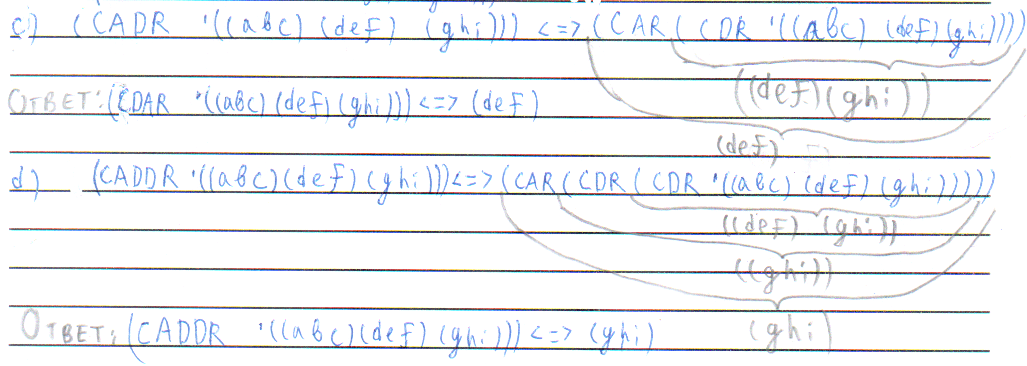 c) (CADR '((abc) (def) (ghi))) <=> (CAR ( CDR '((abc) (def)(ghi))))
((def)(ghi))
Ответ: (CDAR '((abc)(def)(ghi))) <=> (def)
(def)
d) (CADDR '((abc)(def)(ghi))) <=> (CAR (CDR ( CDR '((abc) (def)(ghi)))))
((def) (ghi))
((ghi))
Ответ: (CADDR '((abc)(def)(ghi))) <=> (ghi)
(ghi)